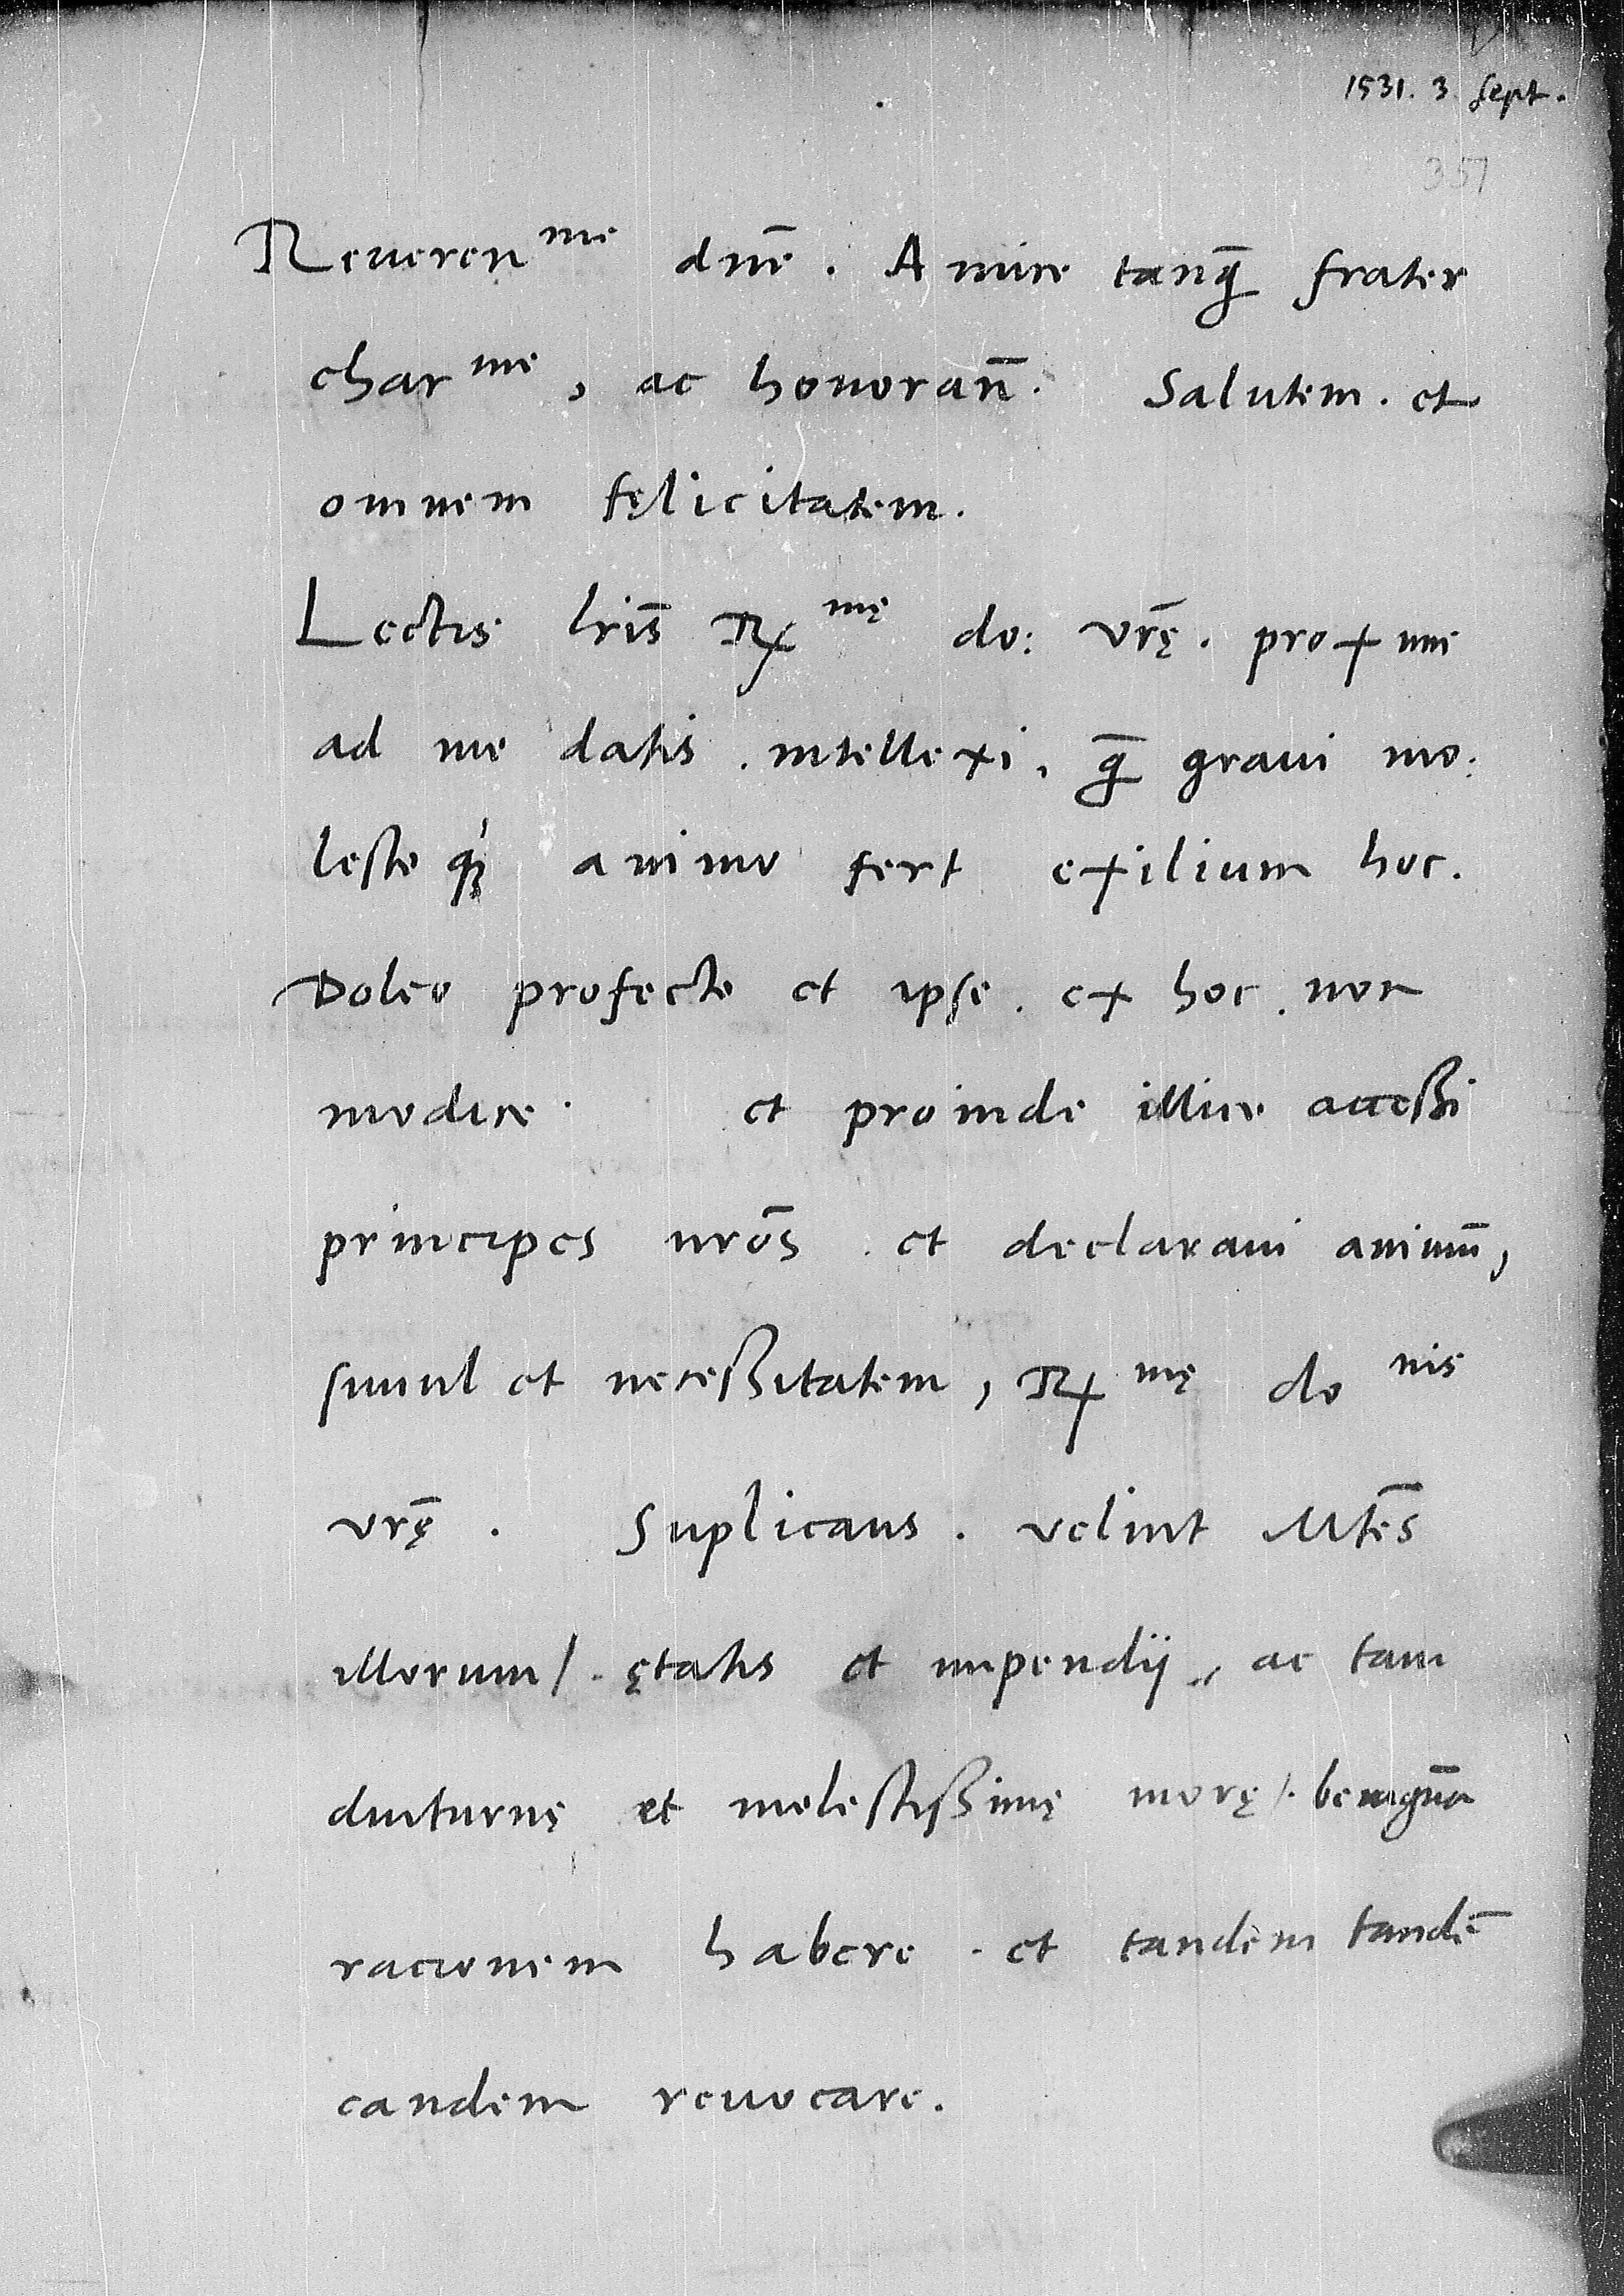 1531. 3 Sept.
357
Reueren^me dn̄e. Amice tanq̄ frater
char^me, ac honoran̄. Salutem. et
omnem fęlicitatem.
Lectis lr̄is R^mę do: vr̄ę. proxime
ad me datis. intellexi, q̄ graui mo:
lesteq; animo fert exilium hoc.
Doleo profecto et ipse. ex hoc. non
modice. et proinde illico accessi
principes nr̄os. et declaraui animū,
simul et necessitatem, R^mę do^nis
vr̄ę. Suplicans. velint Mt̄es
illorum/. ętatis et impendij, ac tam
diuturnę et molestissimę morę/. benignā
racionem habere. et tandem tandē
eandem reuocare.